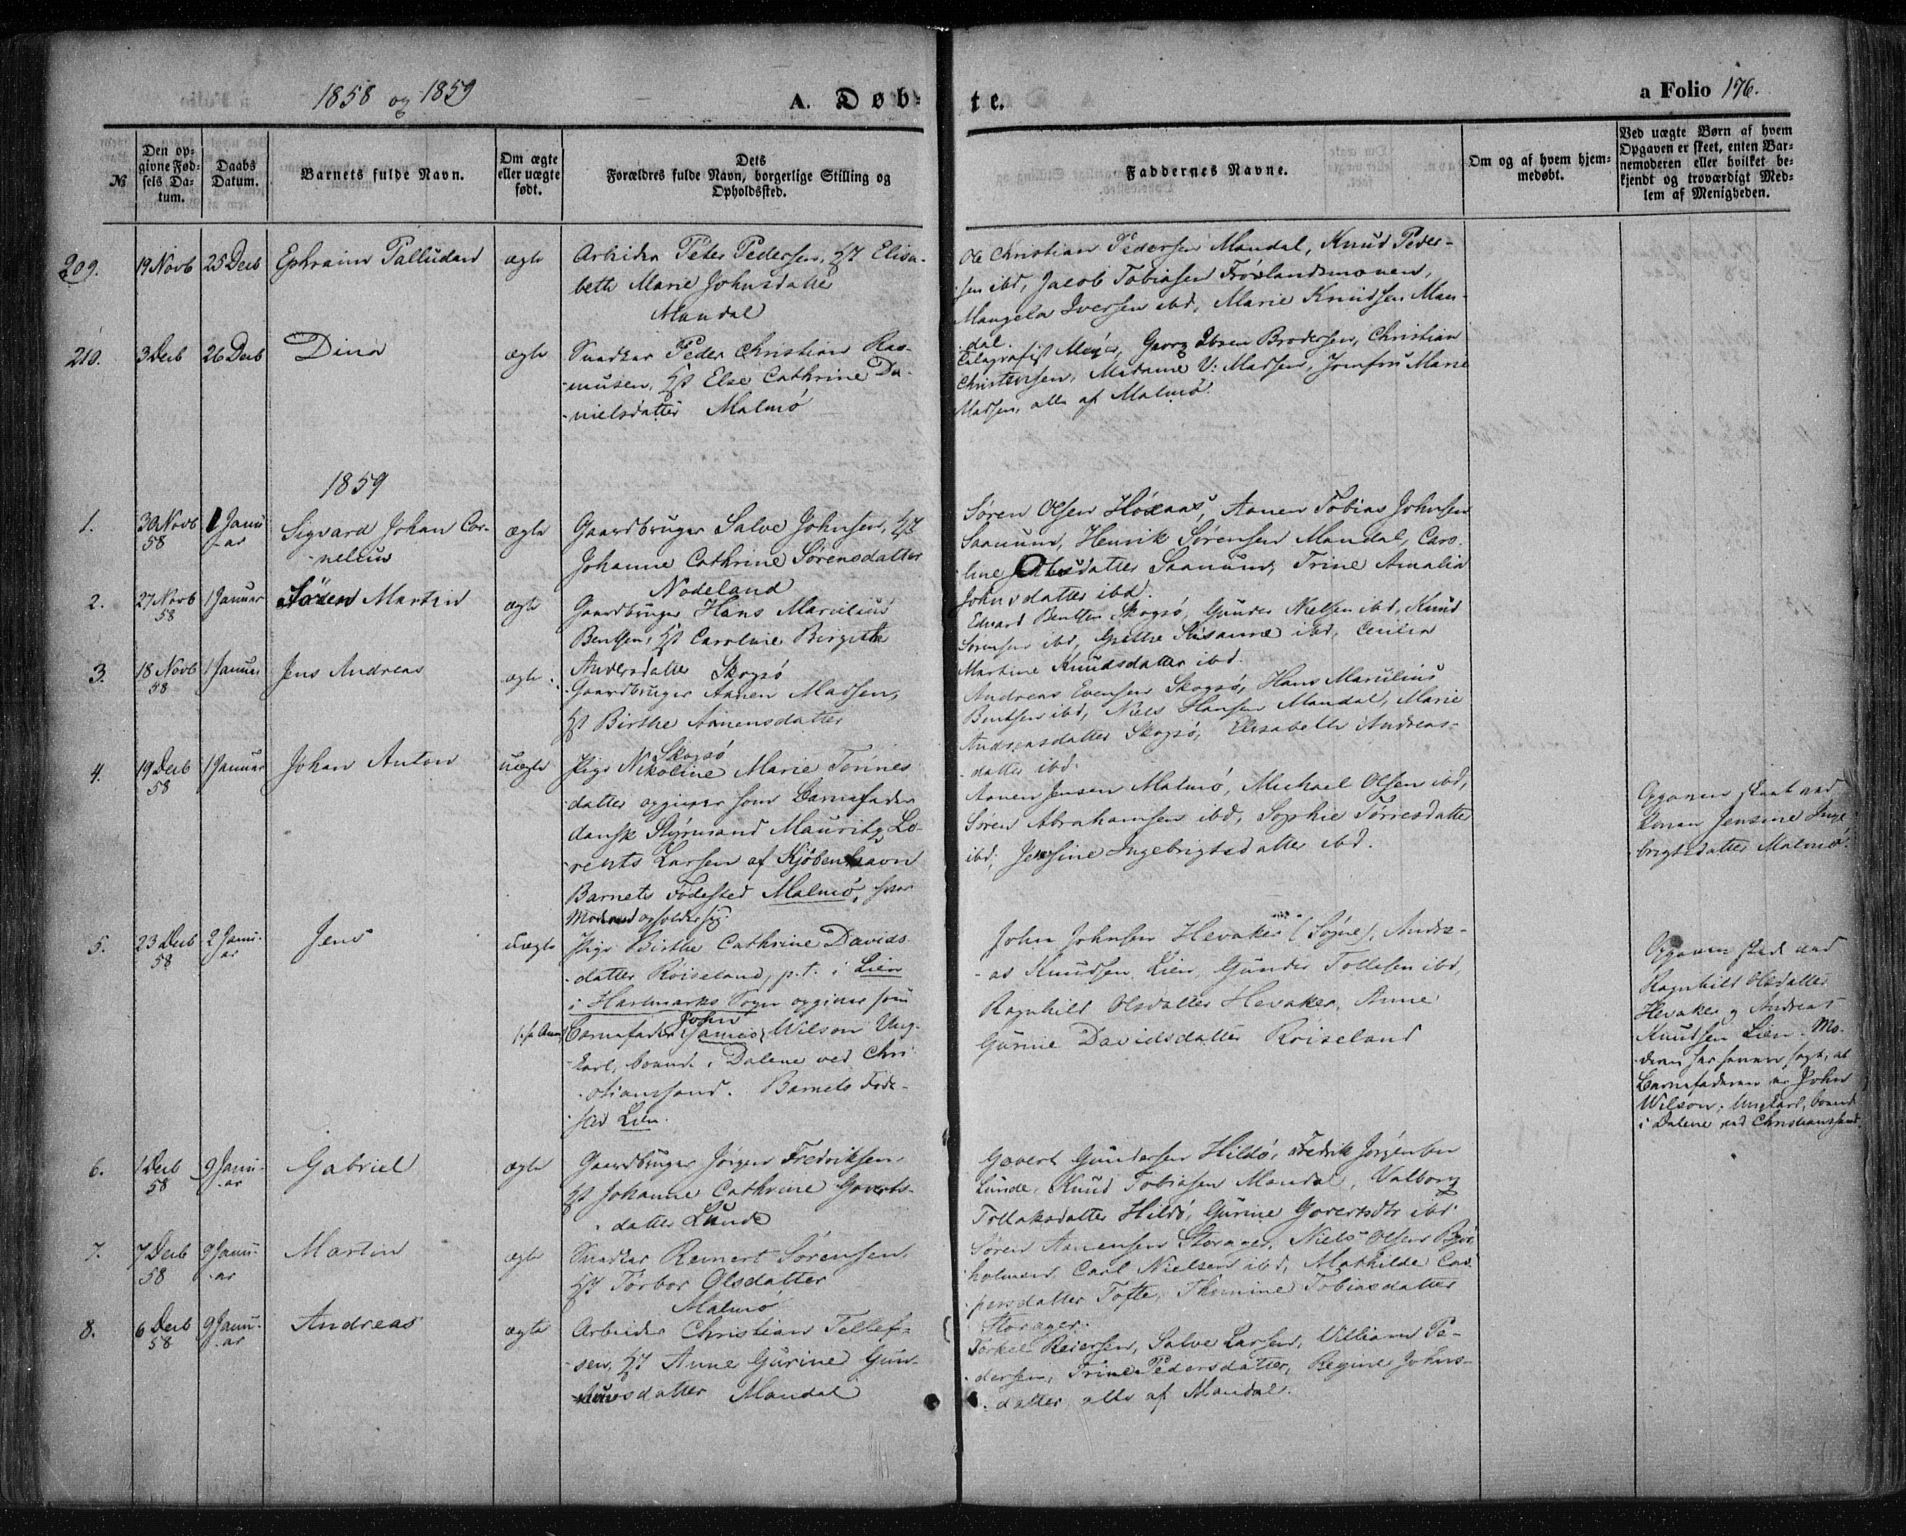 1858 og 1859
A. Døb-
te.
a Folio 176.
№
Den op-
givne Fød-
sels Da-
tum.
Daabs
Datum.
Barnets fulde Navn.
Om ægte
eller uægte
født.
Dets
Forældres fulde Navn, borgerlige Stilling og
Opholdssted.
Faddernes Navne.
Om og af hvem hjem-
medøbt.
Ved uægte Børn af hvem
Opgaven er skeet, enten Bar-
nemoderen eller hvilket be-
kjendt og troværdigt Med-
lem af Menigheden.
209.
19 Novb
25 Decb
Ephraim Palludan
ægte
Arbeider Peter Pedersen, Hst Elisa-
beth Marie Johnsdatter
Mandal
Ole Christian Pedersen Mandal, Knud Peder-
sen ibd, Jacob Tobiasen Frøslandsmonen,
Mangela Iversen ibd, Marie Knudsen Man-
dal.
210.
3 Decb
26 Decb
Dina
ægte
Snedker Peder Christian Ras-
musen, Hst Else Cathrine Da-
nielsdatter Malmø
Telegrafist Meyer, Georg Ibsen Brodersen, Christian
Christensen, Madame V: Madsen, Jomfru Marie
Madsen, alle af Malmø.
1859
1.
30 Novb
58
1 Janu
ar
Sigvard Johan Cor-
nelius
ægte
Gaardbruger Salve Johnsen, Hst
Johanne Cathrine Sørensdatter
Nodeland
Søren Olsen Høxaas, Aanen Tobias Johnsen
Saanum, Henrik Sørensen Mandal, Caro-
line Olsdatter Saanum, Trine Amalia
Johnsdatter ibd.
2.
27 Novb
58
1 Januar
Søren Martin
ægte
Gaardbruger Hans Marcelius
Bentsen, Hst Caroline Birgitte
Andersdatter Skogsø
Edvard Bentsen Skogsø, Gunder Nielsen ibd, Knud
Sørensen ibd, Grethe Susanne ibd, Cecilia
Martine Knudsdatter ibd.
3.
18 Novb
58
1 Januar
Jens Andreas
ægte
Gaardbruger Aanen Madsen,
Hst Birthe Aanensdatter
Skogsø
Andreas Evensen Skogsø, Hans Marcelius
Bentsen ibd, Niels Hansen Mandal, Marie
Andreasdatter Skogsø, Elisabeth Andreas-
datter ibd.
4.
19 Decb
58
1 Januar
Johan Anton
uægte
Pige Nikoline Marie Torines
datter opgiver som Barnefader
dansk Styrmand Mauritz Lo-
rents Larsen af Kjøbenhavn
Barnets Fødested Malmø, hvor
Moderen opholder sig.
Aanen Jensen Malmø, Michael Olsen ibd,
Søren Abrahamsen ibd, Sophie Tørresdatter
ibd, Jensine Ingebrigtsdatter ibd.
Opgaven skeet ved
Konen Jensine Inge
brigtsdatter Malmø.
5.
23 Decb
58
2 Janu-
ar
Jens
uægte
Pige Birthe Cathrine Davids
datter Røiseland, p.t. i Lien
i Hartmarks Sogn opgiver som
Barnefader John James Wilson Ung-
karl, boende i Dalene ved Chri
stianssand. Barnets Føde-
sted Lien.
John Johnsen Hevaker (Søgne), Andre-
as Knudsen, Lien, Gunder Tollesen ibd,
Ragnhild Olsdatter Hevaker, Anne
Gurine Davidsdatter Røiseland
Opgaven skede ved
Ragnhild Olsdatter
Hevaker og Andreas
Knudsen Lien. Mo-
deren har havt sagt, at
Barnefaderen er John
Wilson, Ungkarl, boende
i Dalene ved Christianssand.
6.
1 Decb
58
9 Janu-
ar
Gabriel
ægte
Gaardbruger Jørgen Fredriksen,
Hst Johanne Cathrine Goverts-
datter Lunde
Govert Gundersen Hildø, Fredrik Jørgensen
Lunde, Knud Tobiasen Mandal, Valborg
Tollaksdatter Hildø, Gurine Govertsdtr ibd.
7.
7 Decb
58
9 Janu-
ar
Martin
ægte
Snedker Reinert Sørensen,
Hst Torbor Olsdatter
Malmø
Søren Aanensen Storager, Niels Olsen
holmen, Carl Nielsen ibd, Mathilde Cas
persdatter Tofte, Thomine Tobiasdatter
Storager.
8.
6 Decb
58
9 Janu-
ar
Andreas
ægte
Arbeider Christian Tellef-
sen, Hst Anne Gurine Gun-
datter Mandal
Torkel Reiersen, Salve Larsen, Villiam Pe-
dersen, Trine Pedersdatter, Regine Johns-
datter, alle af Mandal.